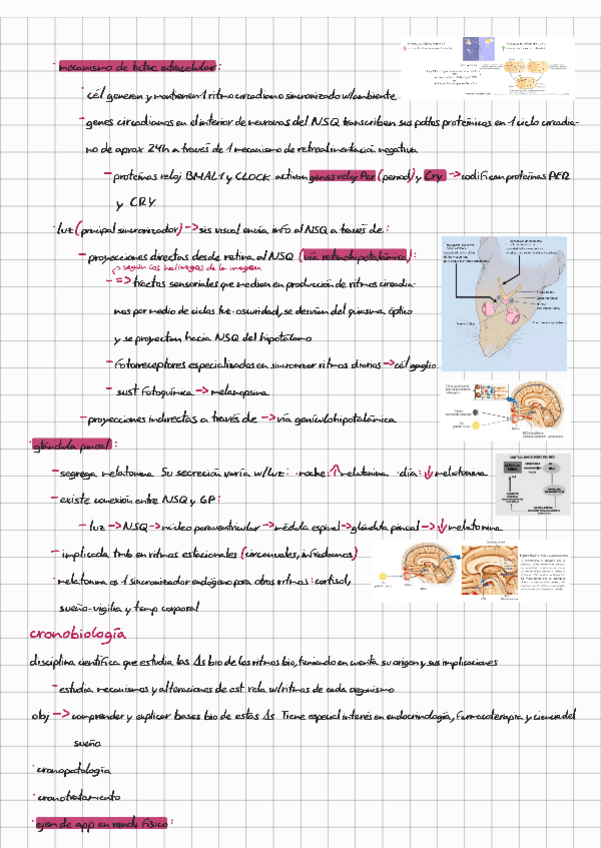 · mecanismo de betac intracelular:
· cél generan y mantienen 1 ritmo circadiano sincronizado w/ambiente
- genes circadianos en el interior de neuronas del NSQ transcriben sus pdtos proteínicos en 1 ciclo circadia-
no de aprox 24h a través de 1 mecanismo de retroalimentación negativa
- proteínas reloj BMAL1 y CLOCK activan genes reloj Per (period) y Cry -> codifican proteínas PER
y CRY
· luz (principal sincronizador) -> sis visual envía info al NSQ a través de:
- proyecciones directas desde retina al NSQ (vía retinohipotalámica):
según los hallazgos de la imagen
- => tractos sensoriales que median en producción de ritmos circadia-
nos por medio de ciclos luz-oscuridad, se desvían del quiasma óptico
y se proyectan hacia NSQ del hipotálamo
- fotorreceptores especializados en sincronizar ritmos diarios -> cél ganglio
- sust fotoquímica -> melanopsina
- proyecciones indirectas a través de -> vía geniculohipotalámica
· glándula pineal:
- segrega melatonina. Su secreción varía w/luz: · noche: ↑ melatonina · día: ↓ melatonina
- existe conexión entre NSQ y GP:
- luz -> NSQ -> núcleo paraventricular -> médula espinal -> glándula pineal -> ↓ melatonina
- implicada tmb en ritmos estacionales (circannuales, infradianos)
· melatonina es 1 sincronizador endógeno para otros ritmos: cortisol,
sueño-vigilia y temp corporal
cronobiología
disciplina científica que estudia las Δs bio de los ritmos bio, teniendo en cuenta su origen y sus implicaciones
- estudia mecanismos y alteraciones de est rela w/ritmos de cada organismo
obj -> comprender y explicar bases bio de estas Δs. Tiene especial interés en endocrinología, farmacoterapia y ciencia del
sueño
· cronopatología
· cronotratamiento
· ejem de app en rendi físico: